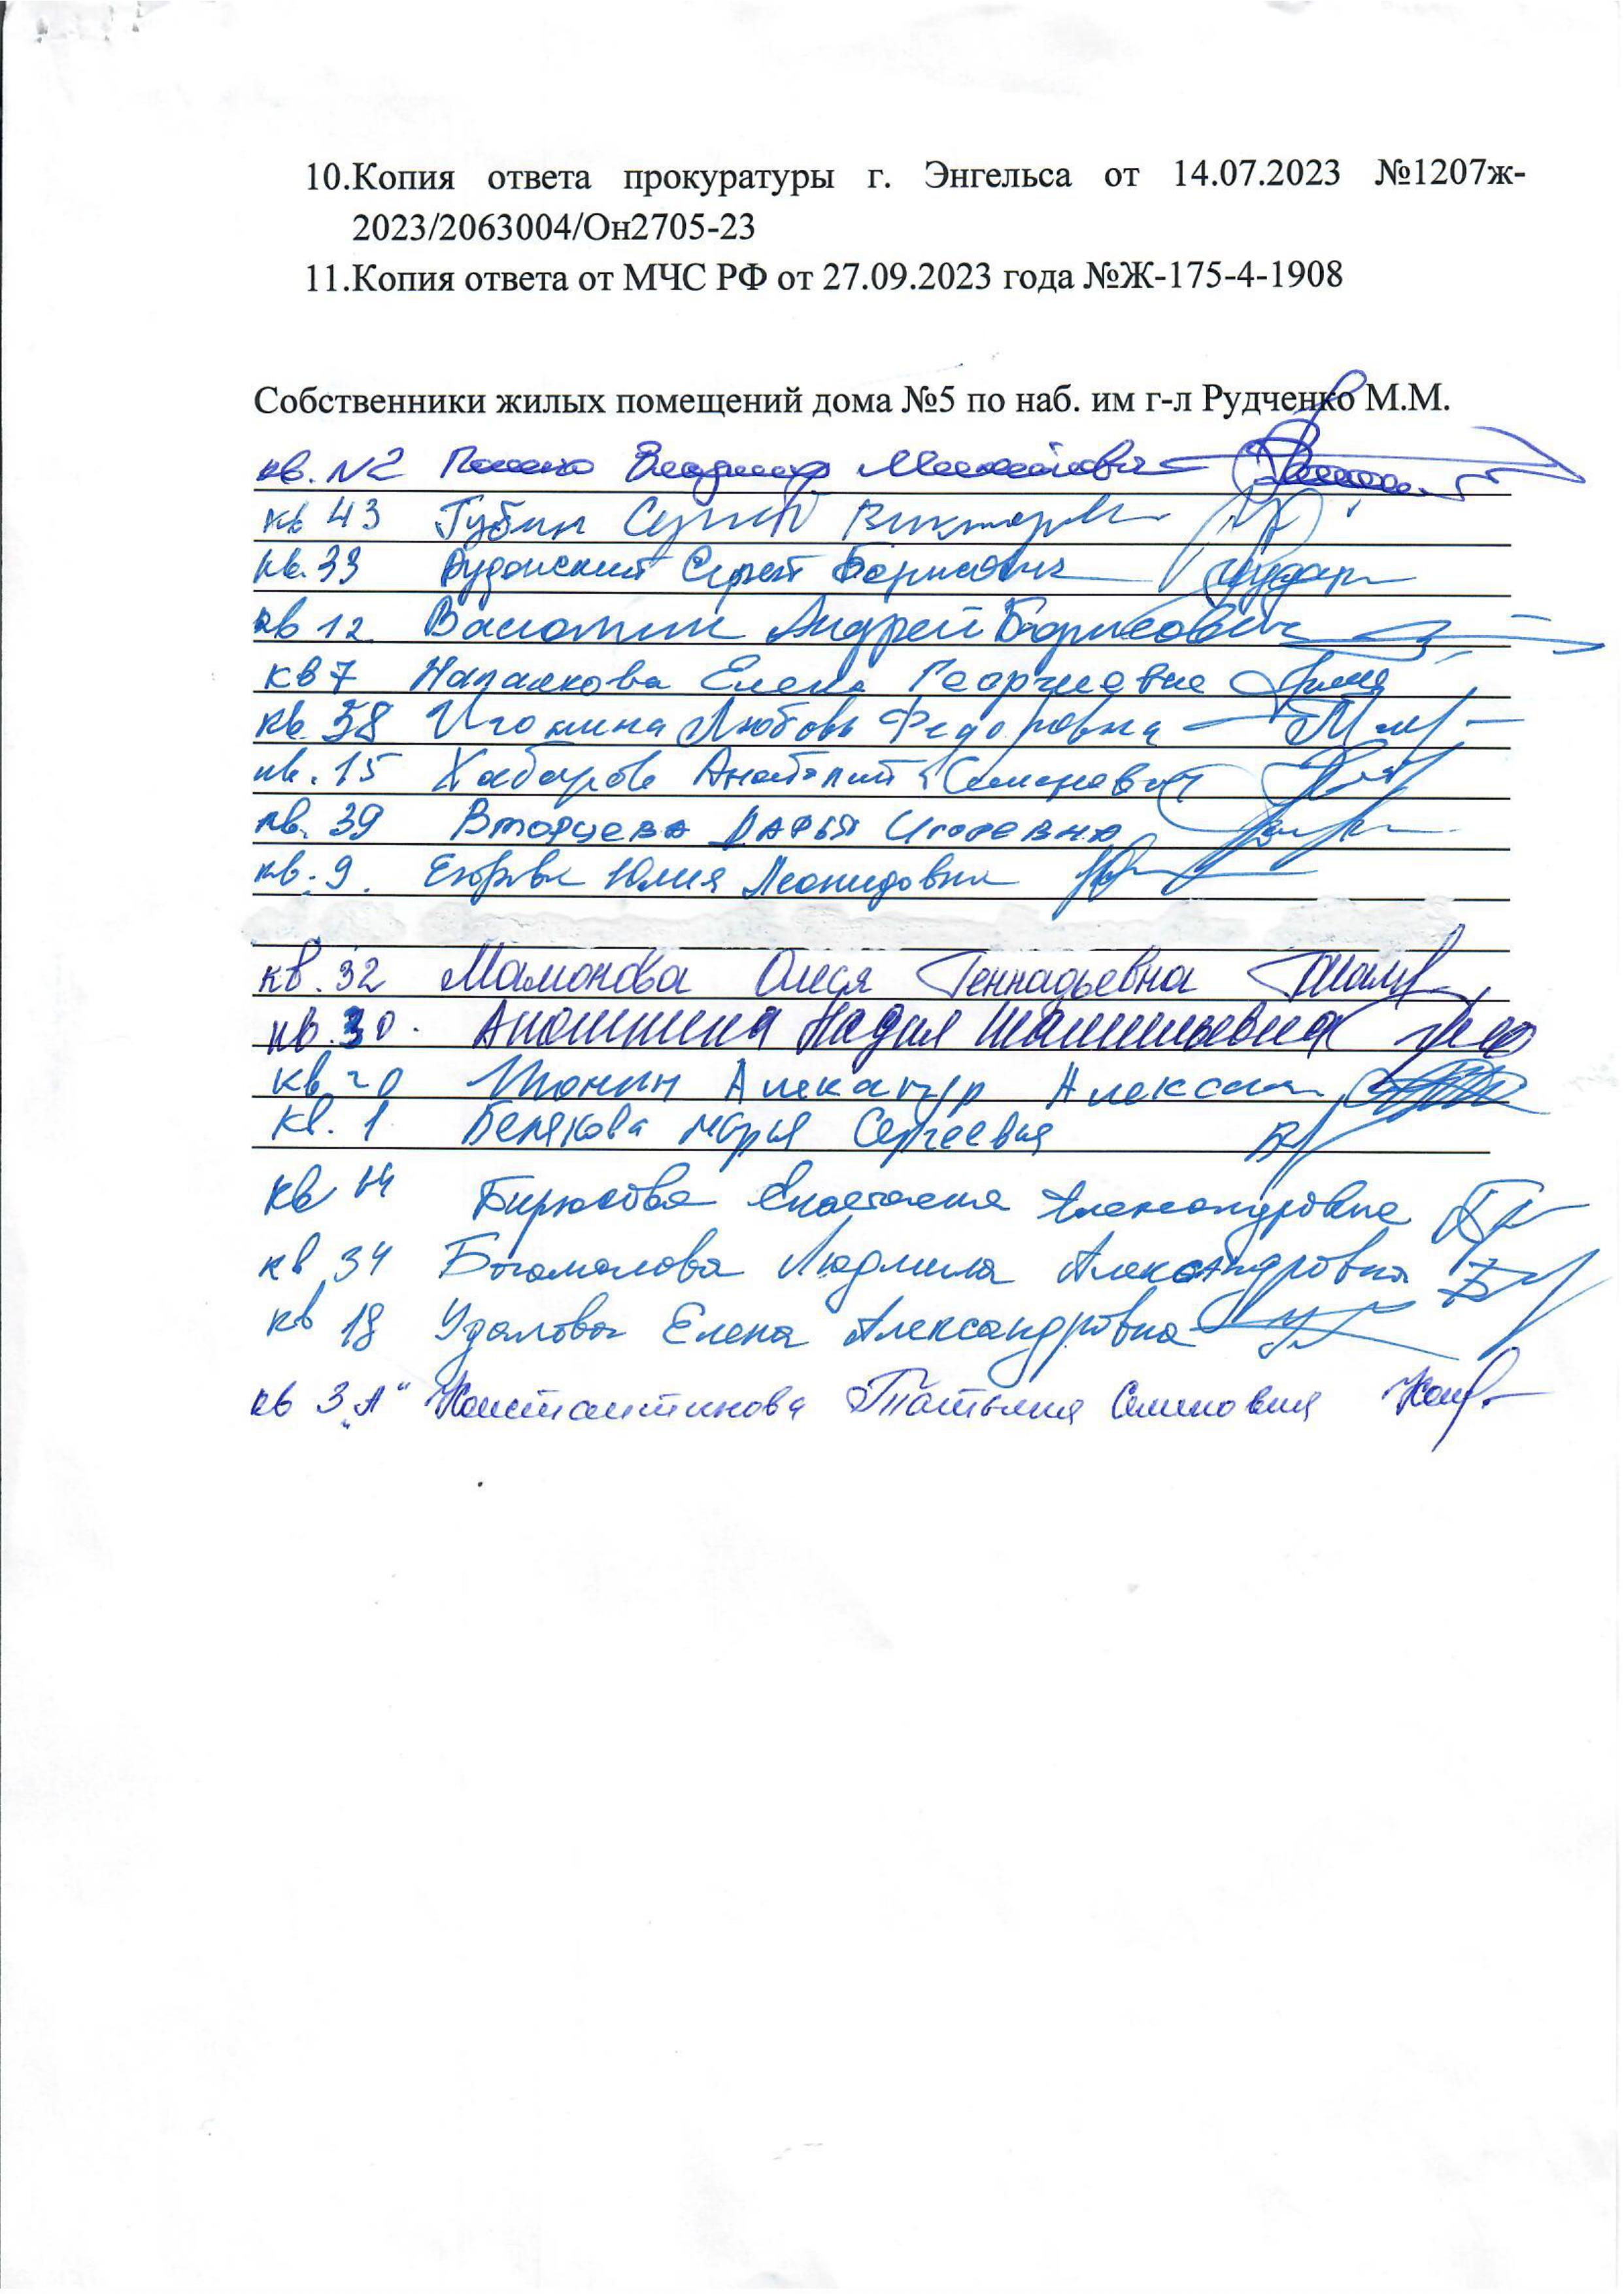 10.Копия ответа прокуратуры г. Энгельса от 14.07.2023 №1207ж-
2023/2063004/Он2705-23
11.Копия ответа от МЧС РФ от 27.09.2023 года №Ж-175-4-1908
Собственники жилых помещений дома №5 по наб. им г-л Рудченко М.М.
кв. N2 Владимир
кв 43 Губин Сергей Викторович
кв. 33 Сергей Борисович
кв 12 Андрей Борисович
кв 7 Напалкова Елена Георгиевна
кв. 38 Игонина Любовь Федоровна
кв. 15 Хабаров Анатолий Семенович
кв. 39 Вторцева Дарья Игоревна
кв. 9. Егорова Юлия Леонидовна
кв. 32 Мамонова Олеся Геннадьевна
кв. 30. Апошкина Надия
кв 20
кв. 1 Белякова Марья Сергеевна
кв 14 Бирюкова Анастасия Александровна
кв 34 Богомолова Людмила Александровна
кв 18 Удалова Елена Александровна
кв 3 „А“ Константинова Татьяна Семеновна